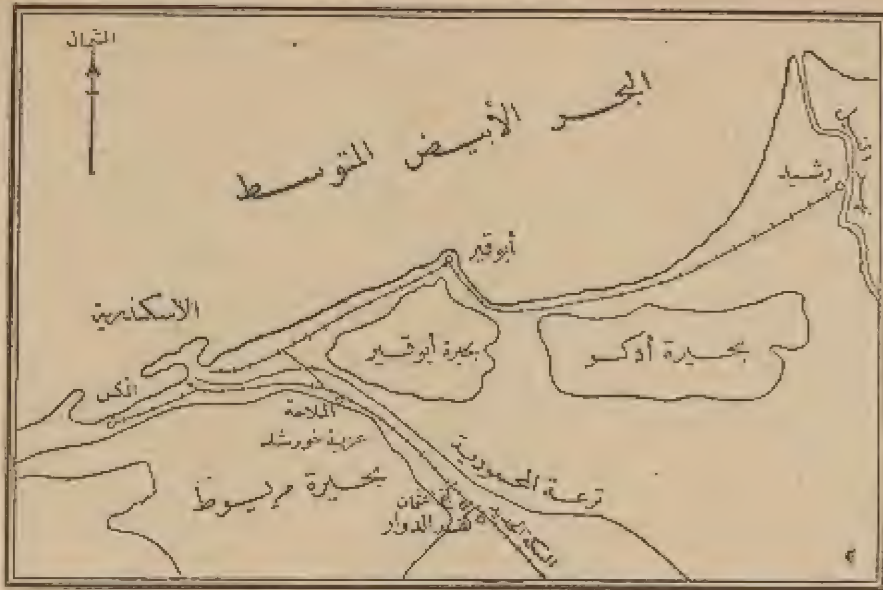 الشمال
البحر الأبيض المتوسط
رشيد
أبوقير
الاسكندرية
بحيرة أبوقير
بحيرة أدكو
المكس
الملاحة
عزبة خورشد
ترعة المحمودية
بحيرة مريوط
عثمان
كفر الدوار
السكة الحديد